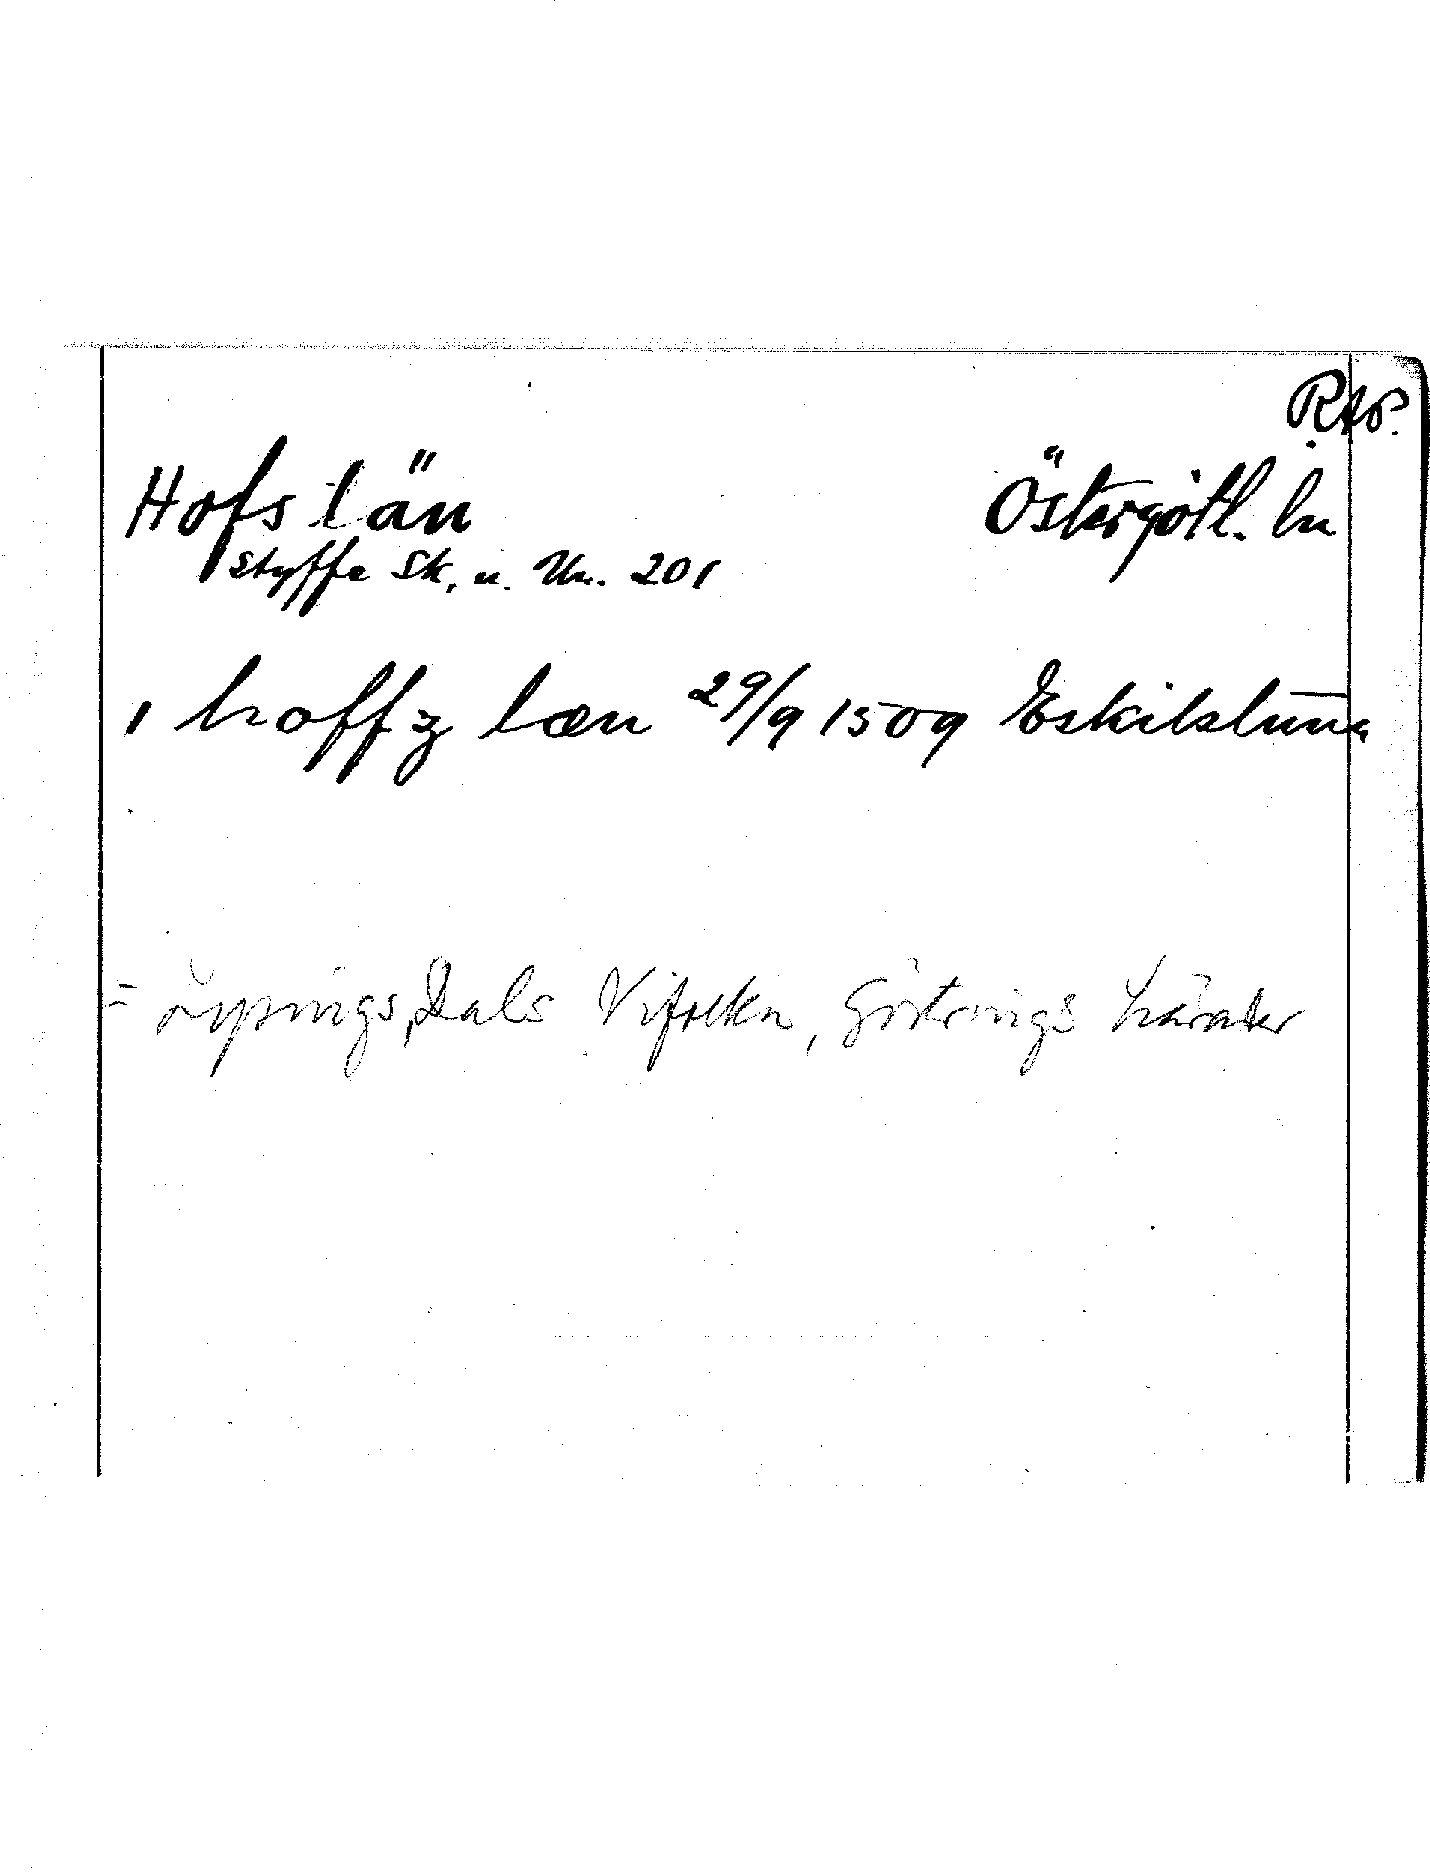 RAP.
Hofs län Östergötl. ln
Styffe Sk. u. Un. 201
i hoffz læn 29/9 1509 Eskilstuna
= Lysings, Dals Vifolka, Göstrings härader